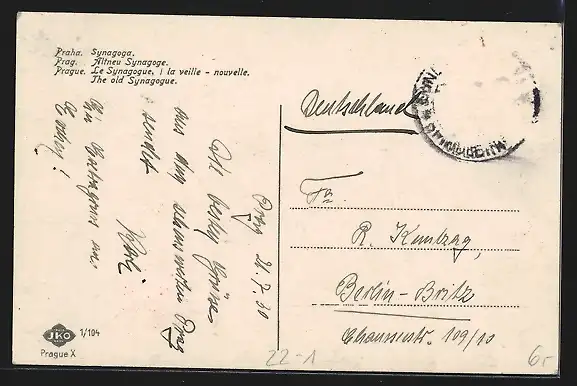 Praha. Synagoga.
Prag. Altneu Synagoge.
Prague. Le Synagogue, i la veille - nouvelle.
The old Synagogue.
Deutschland
Prag 21.7.30
Die besten Grüsse
aus dem schönen Prag
sendet
Karl
Ein Extragruss an
Fa.
R.
Berlin-Britz
Chausseestr. 109/10
JKO 1/104
Prague X
22-1
6.-